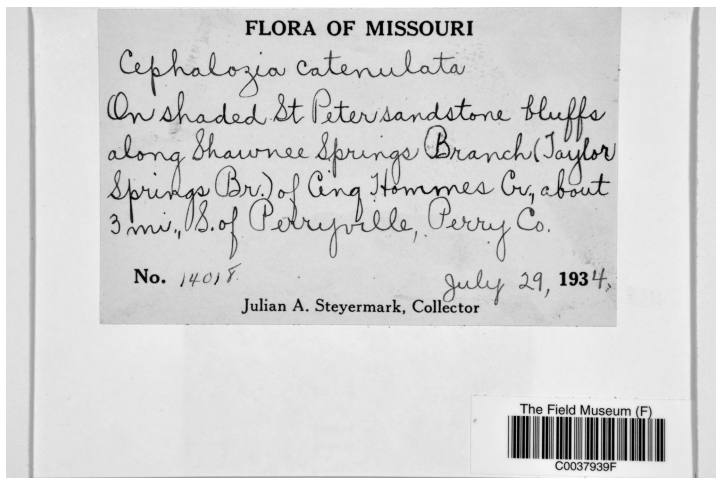 FLORA OF MISSOURI
Cephalozia catenulata
On shaded St Peter sandstone bluffs
along Shawnee Springs Branch (Taylor
Springs Br.) of Cinq Hommes Cr., about
3 mi., S. of Perryville, Perry Co.
No. 14018. July 29, 1934.
Julian A. Steyermark, Collector
The Field Museum (F)
C0037939F